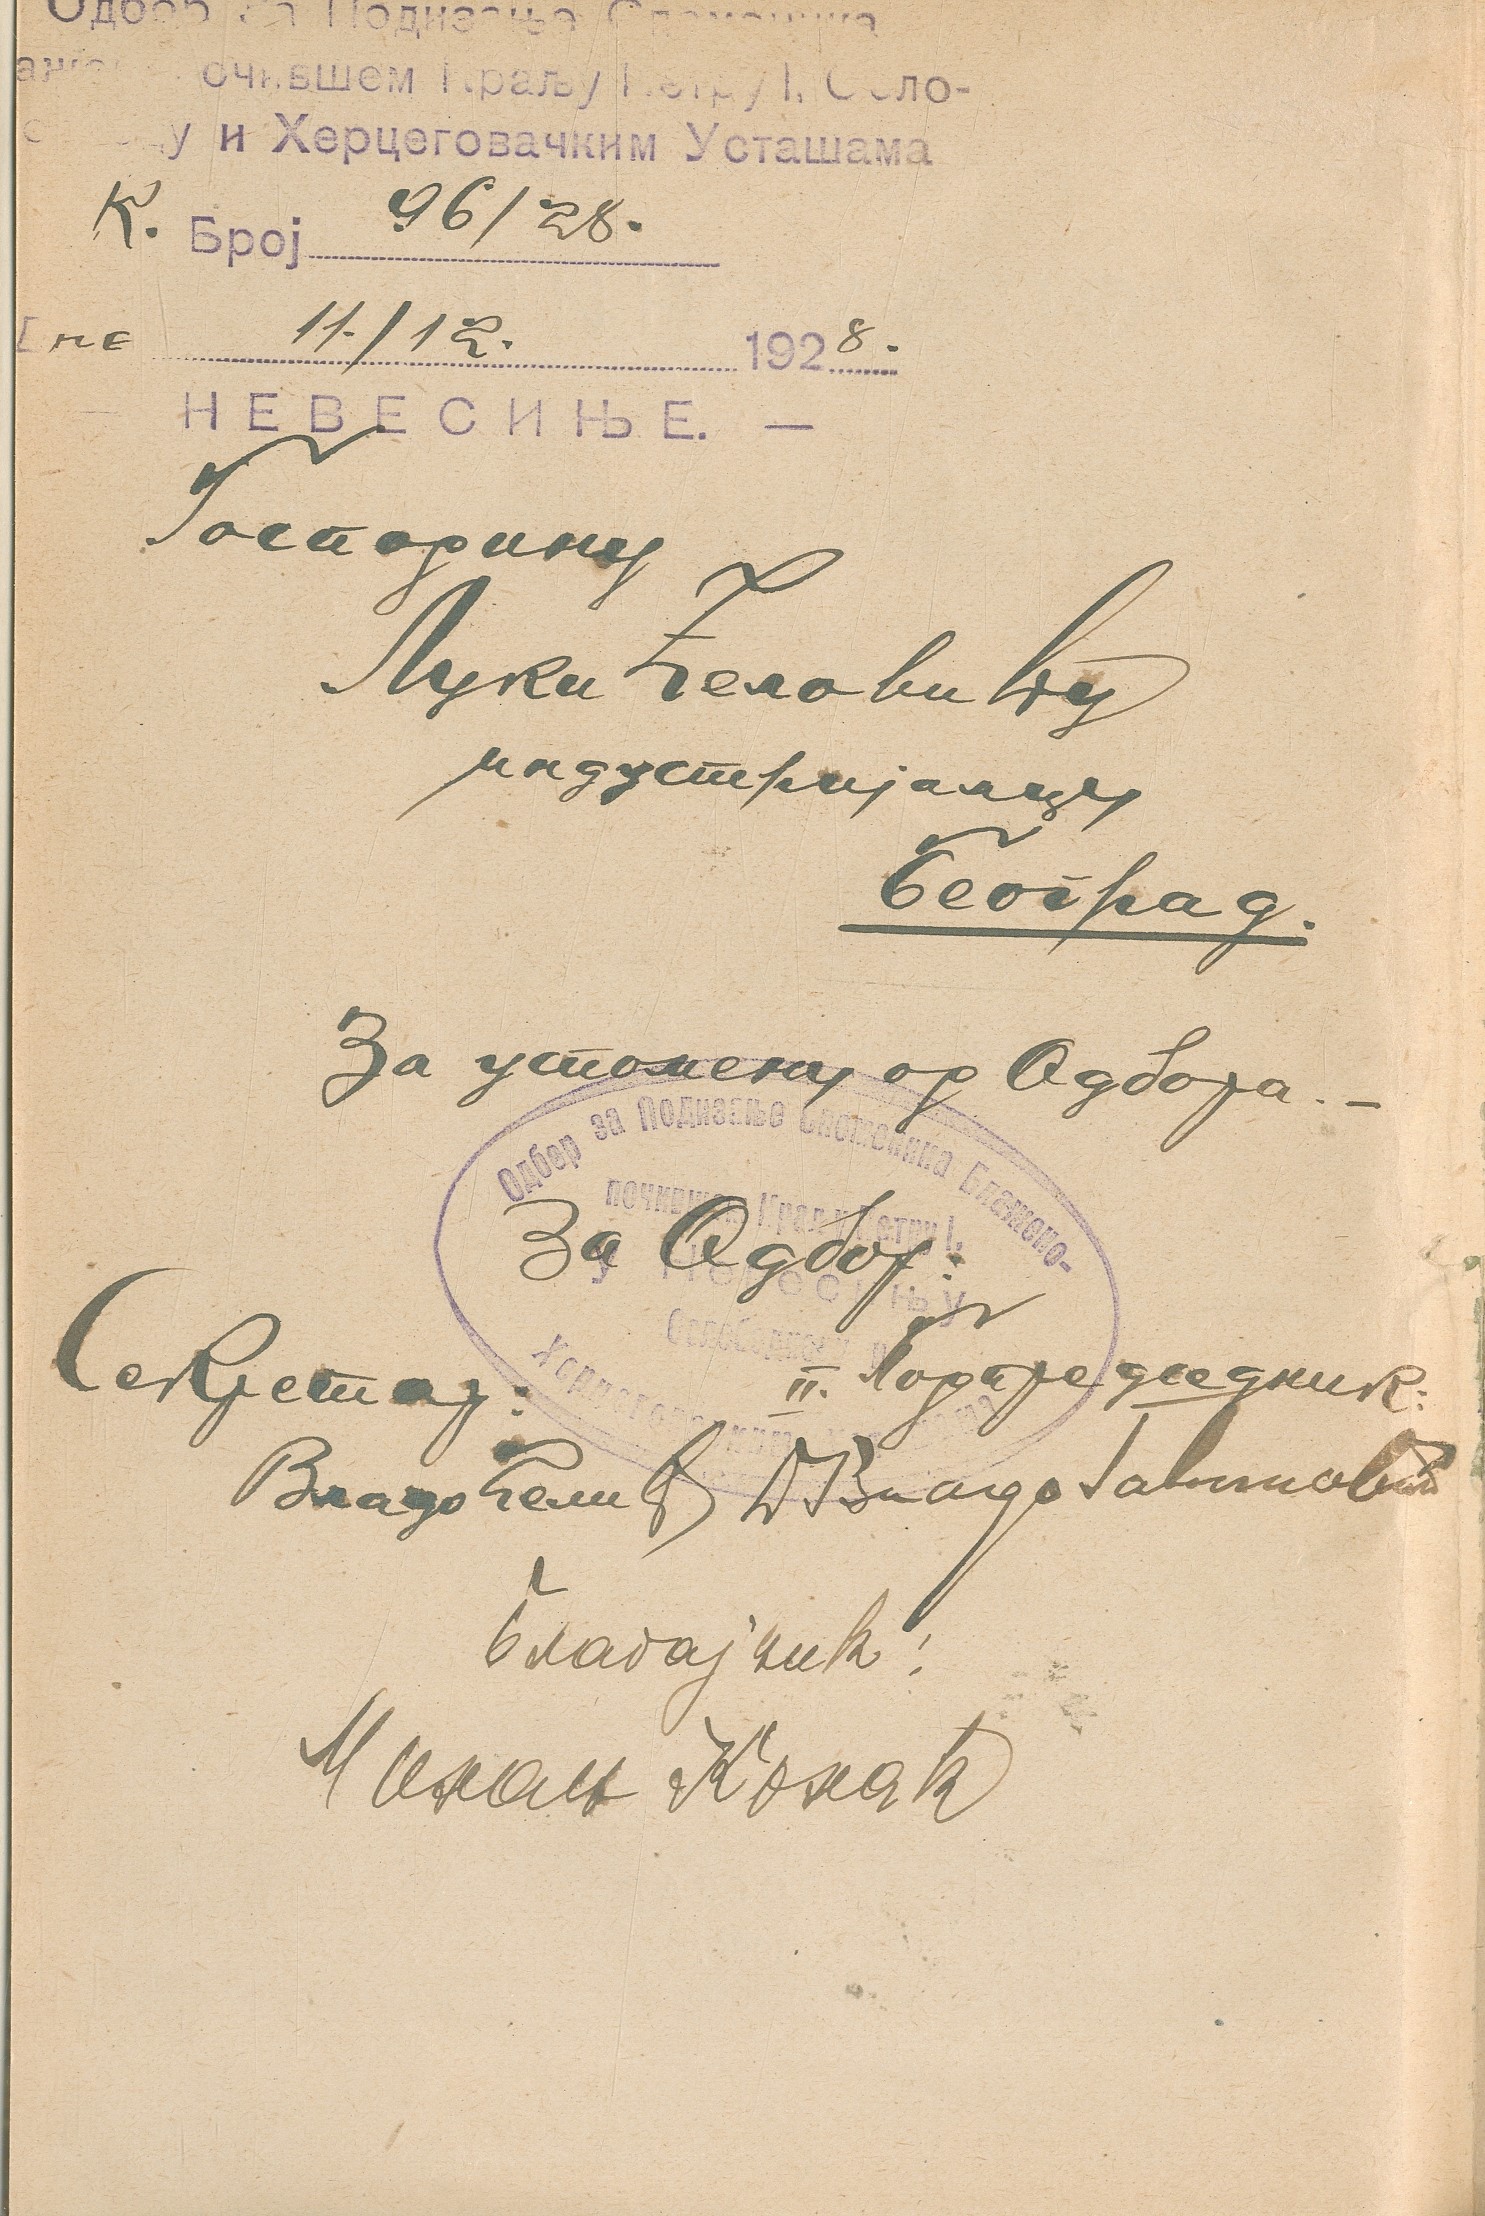 Одбор за Подизање Споменика
очившем Краљу Петру I. Осло-
у и Херцеговачким Усташама
К. Број 96/28.
Дне 11./12. 1928.
НЕВЕСИЊЕ. —
Господину
Луки Ћеловићу
индустријалцу
Београд.
За успомену од Одбора. –
Одбор за Подизање Споменика Блажено-
почившем Краљу Петру I.
У НЕВЕСИЊУ
Ослободиоцу и
Херцеговачким Усташама
За Одбор:
Секретар:
II. Подпредседник:
Владо
Владо
Благајник: